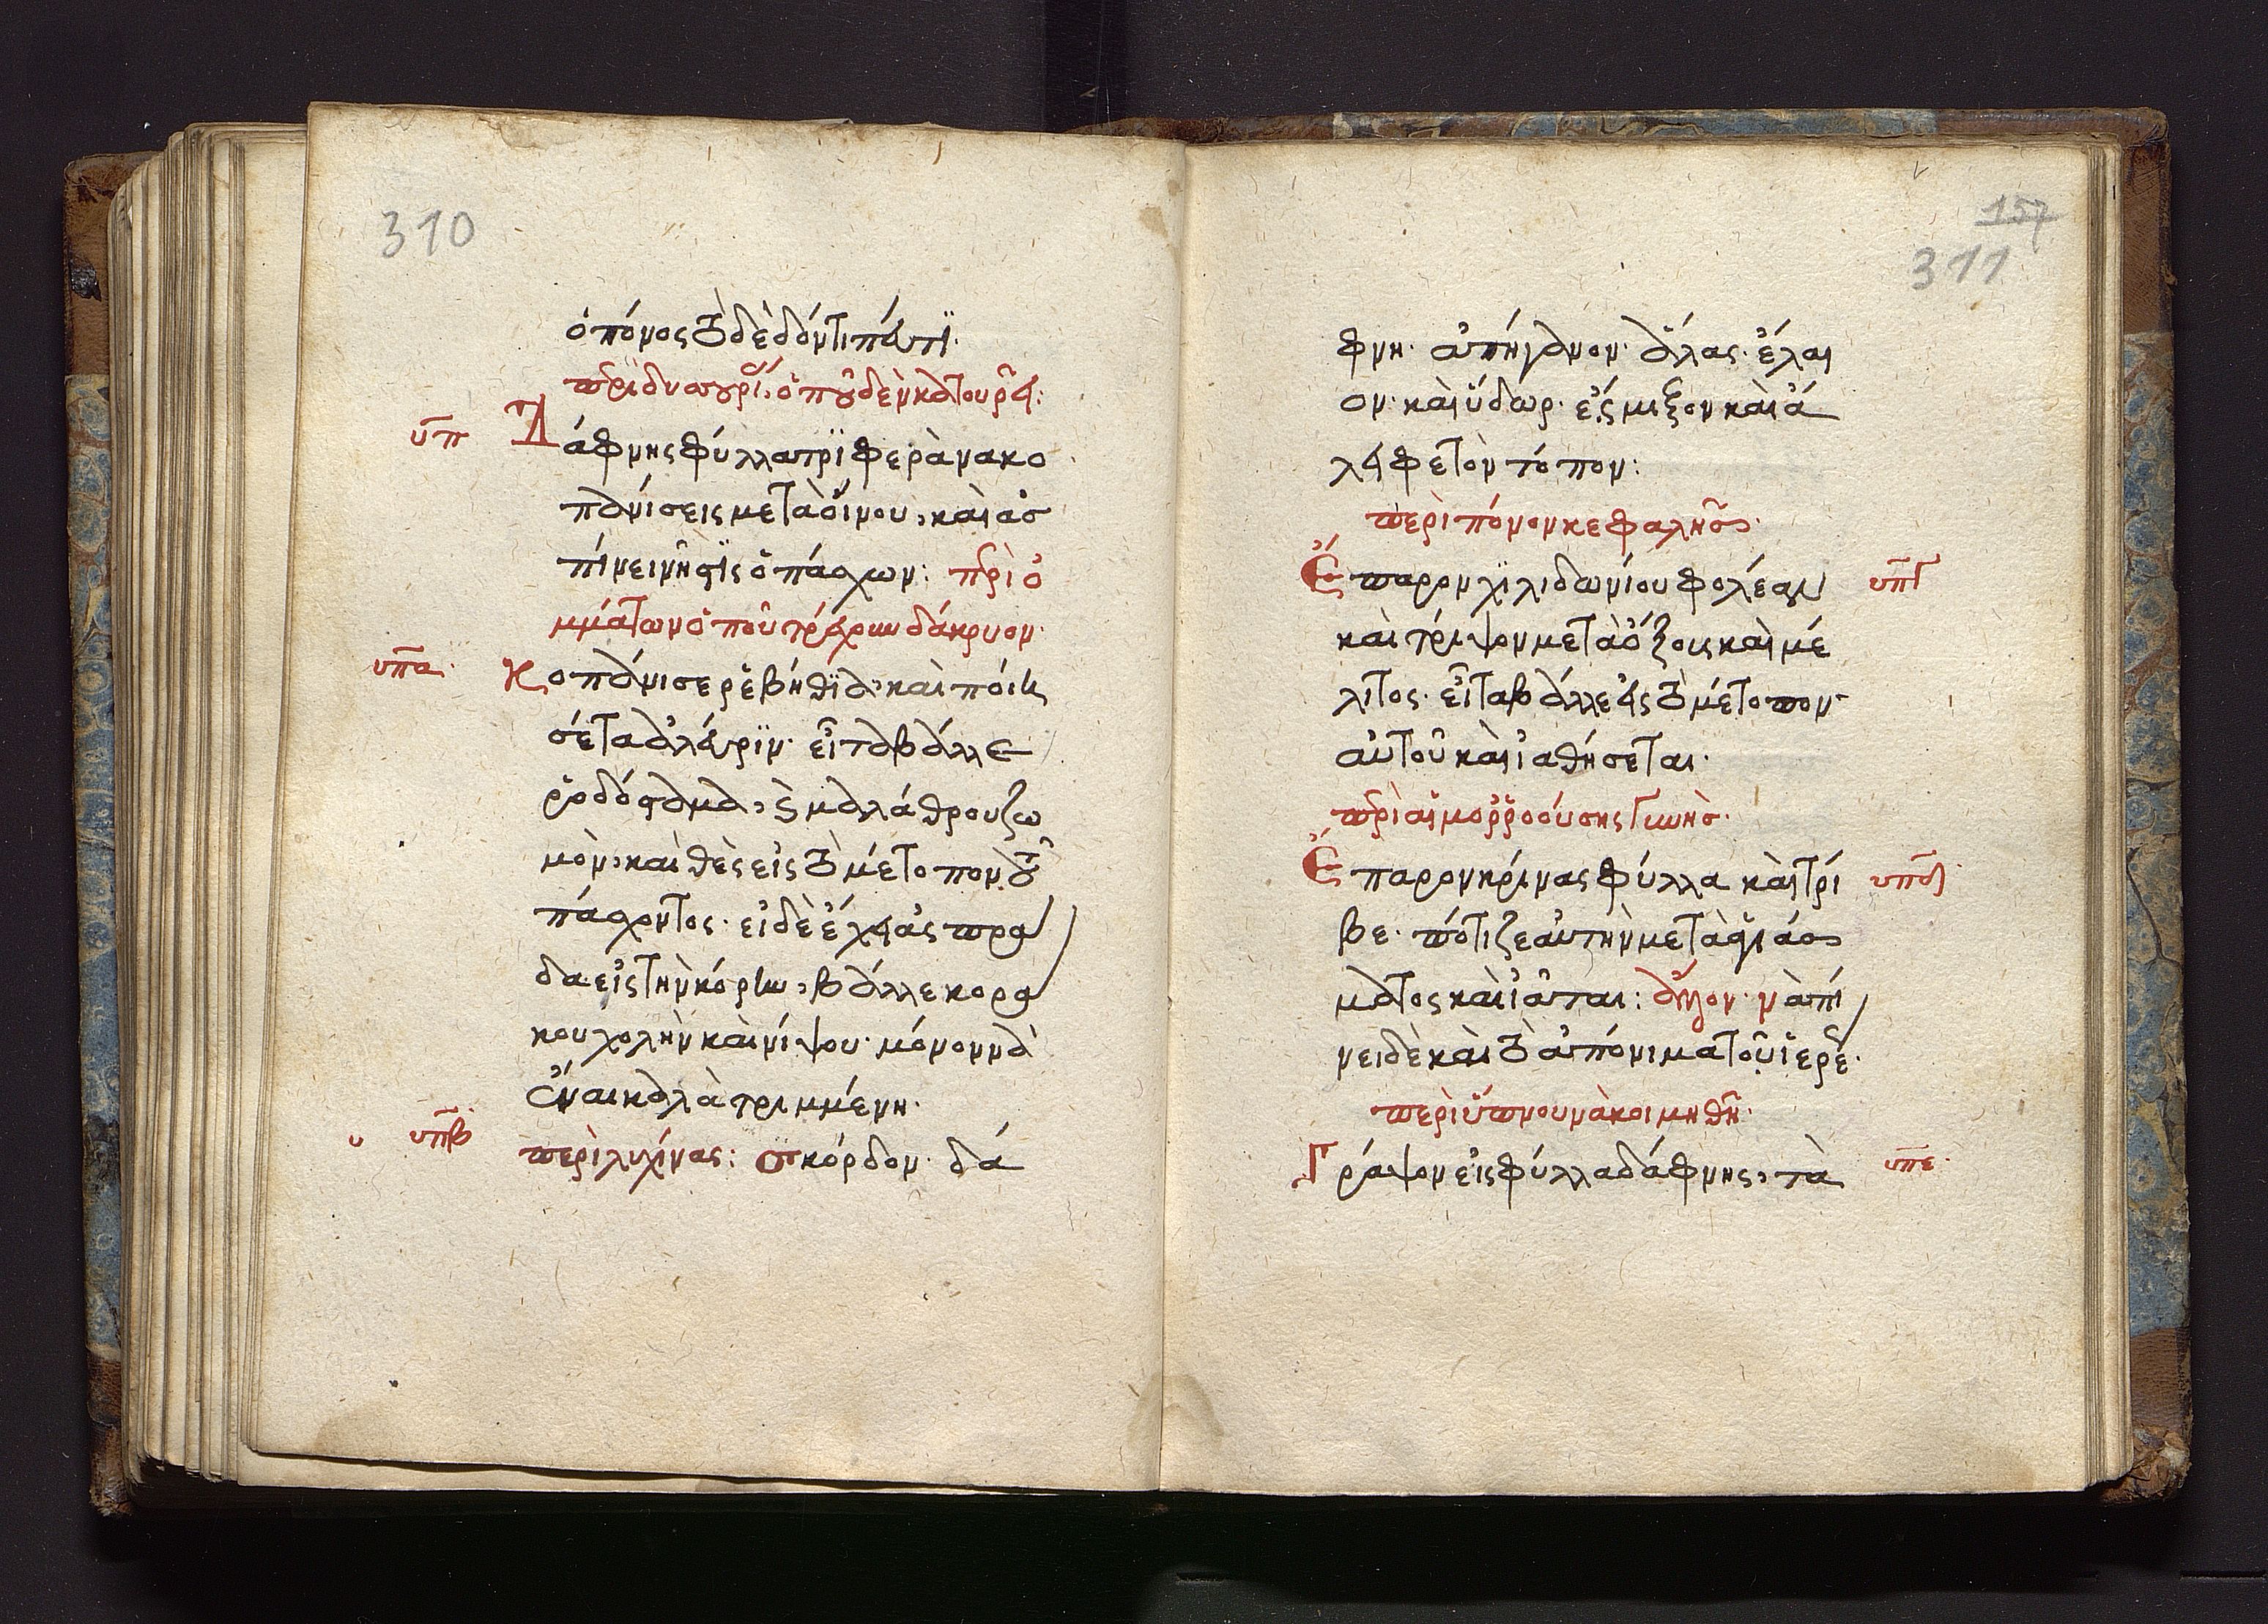 310
ὁ πόνος τὸ δὲ δόντι πάντï·
περὶ δυσουρί, ὁποῦ δὲν κατουρεῖ:
υπ Δάφνης φύλλα τρϊφερὰ να κο
πανίσεις μετὰ οἴνου, καὶ ας
πίνει νῆστις ὁ πάσχων: περὶ ὀ
μμάτων ὁποῦ τρέχουν δάκρυον·
υπα· Κοπάνισε ρεβήθϊα, καὶ ποίη
σέ τα ἀλεύρϊν· εἶτα βάλλε
ροδόσταμα, καὶ μαλάθρου ζω
μὸν, καὶ θὲς εἰς τὸ μέτοπον τοῦ
πάσχοντος· εἰ δὲ ἔχει ἀσπρα
δα εἰς τὴν κόρην, βάλλε κορα
κου χολὴν καὶ νίψου· μόνον να
ἔναι καλὰ τριμμένη·
υ υπβ περὶ λιχίνας: σκόρδον· δά
157
311
φνη· ἀπήγανον· ἅλας· ἔλαι
ον· καὶ ὕδωρ· εἰς μίξον καὶ ἄ
λειφε τὸν τόπον:
περὶ πόνον κεφαλῆς·
Ἔπαρον χϊλιδωνίου φολέαν υπγ
καὶ τρίψον μετὰ ὄξους καὶ μέ
λιτος· εἶτα βάλλε εἰς τὸ μέτοπον
αὐτοῦ καὶ ἰαθήσεται·
περὶ αἱμορροούσης γυνὴς·
Ἔπαρον κρίνας φύλλα καὶ τρί υπδ
βε· πότιζε αὐτὴν μετὰ ϥιάσ
ματος καὶ ἰᾶται: ἄλλον· νὰ πί
νει δὲ καὶ τὸ ἀπόνιμα τοῦ ἱερέ·
περὶ ὕπνου νὰ κοιμηθῆ·
Γράψον εἰς φύλλα δάφνης, τὰ υπε·